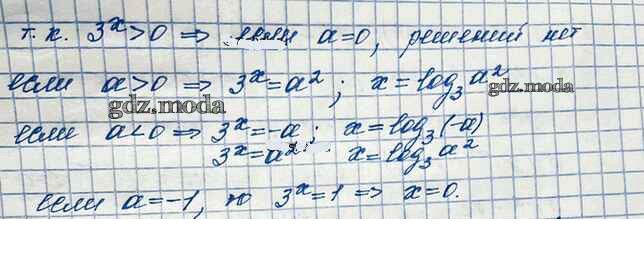 т.к. 3^x>0 ⇒ если a=0, решений нет
если a>0 ⇒ 3^x=a²; x=log₃a²
gdz.moda
gdz.moda
если a<0 ⇒ 3^x=-a; x=log₃(-a)
3^x=a²; x=log₃a²
если a=-1, то 3^x=1 ⇒ x=0.